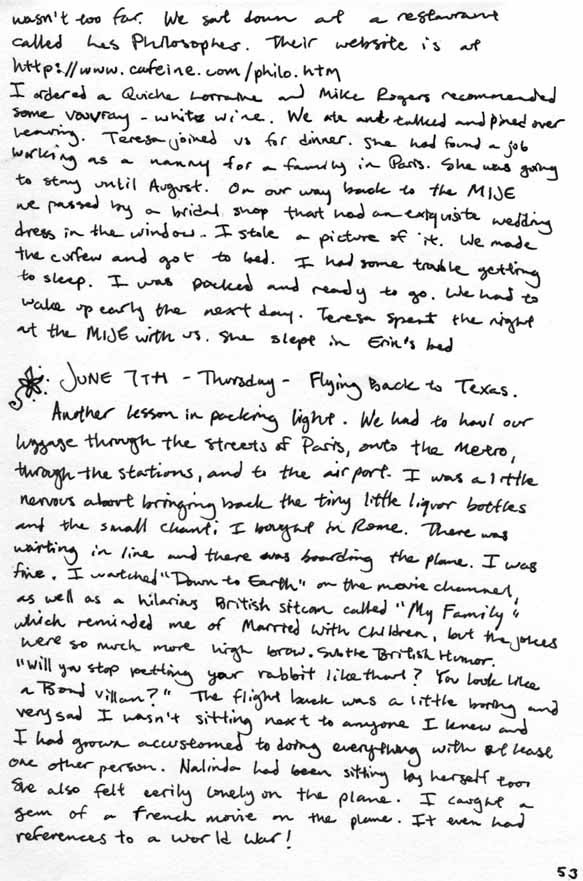 wasn't too far. We sat down at a restaurant
called Les Philosophes. Their website is at
http://www.cafeine.com/philo.htm
I ordered a Quiche Lorraine and Mike Rogers recommended
some vouvray - white wine. We ate and talked and pined over
leaving. Teresa joined us for dinner. She had found a job
working as a nanny for a family in Paris. She was going
to stay until August. On our way back to the MIJE
we passed by a bridal shop that had an exquisite wedding
dress in the window. I stole a picture of it. We made
the curfew and got to bed. I had some trouble getting
to sleep. I was packed and ready to go. We had to
wake up early the next day. Teresa spent the night
at the MIJE with us. She slept in Erin's bed
JUNE 7TH - Thursday - Flying Back to Texas.
Another lesson in packing light. We had to haul our
luggage through the streets of Paris, onto the Metro,
through the stations, and to the airport. I was a little
nervous about bringing back the tiny little liquor bottles
and the small chianti I bought in Rome. There was
waiting in line and there was boarding the plane. I was
fine. I watched "Down to Earth" on the movie channel,
as well as a hilarious British sitcom called "My Family"
which reminded me of Married with Children, but the jokes
were so much more high brow. Subtle British Humor.
"Will you stop petting your rabbit like that? You look like
a Bond villan?" The flight back was a little boring and
very sad I wasn't sitting next to anyone I knew and
I had grown accustomed to doing everything with at least
one other person. Nalinda had been sitting by herself too.
She also felt eerily lonely on the plane. I caught a
gem of a French movie on the plane. It even had
references to a World War!
53